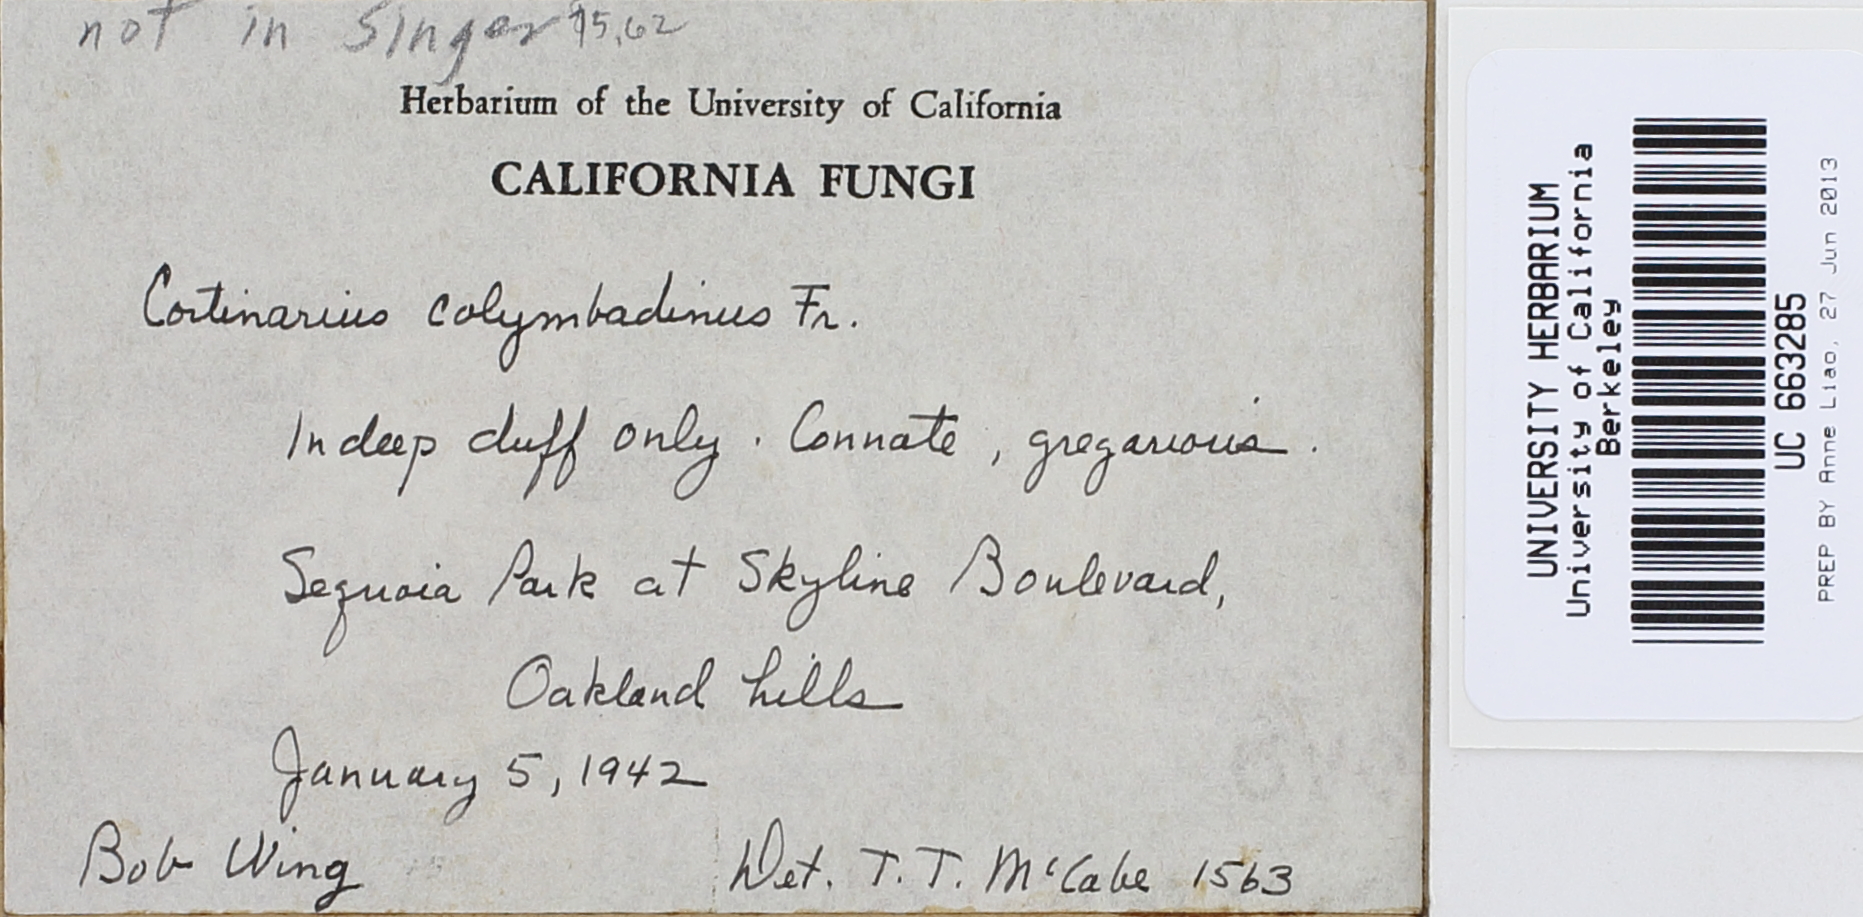 not in Singer 75, 62
Herbarium of the University of California
CALIFORNIA FUNGI
Cortinarius colymbadinus Fr.
In deep duff only. Connate, gregarious.
Sequoia Park at Skyline Boulevard,
Oakland hills
January 5, 1942
Bob Wing
Det. T. T. McCabe 1563
UNIVERSITY HERBARIUM
University of California
Berkeley
UC 663285
PREP BY Anne Liao, 27 Jun 2013